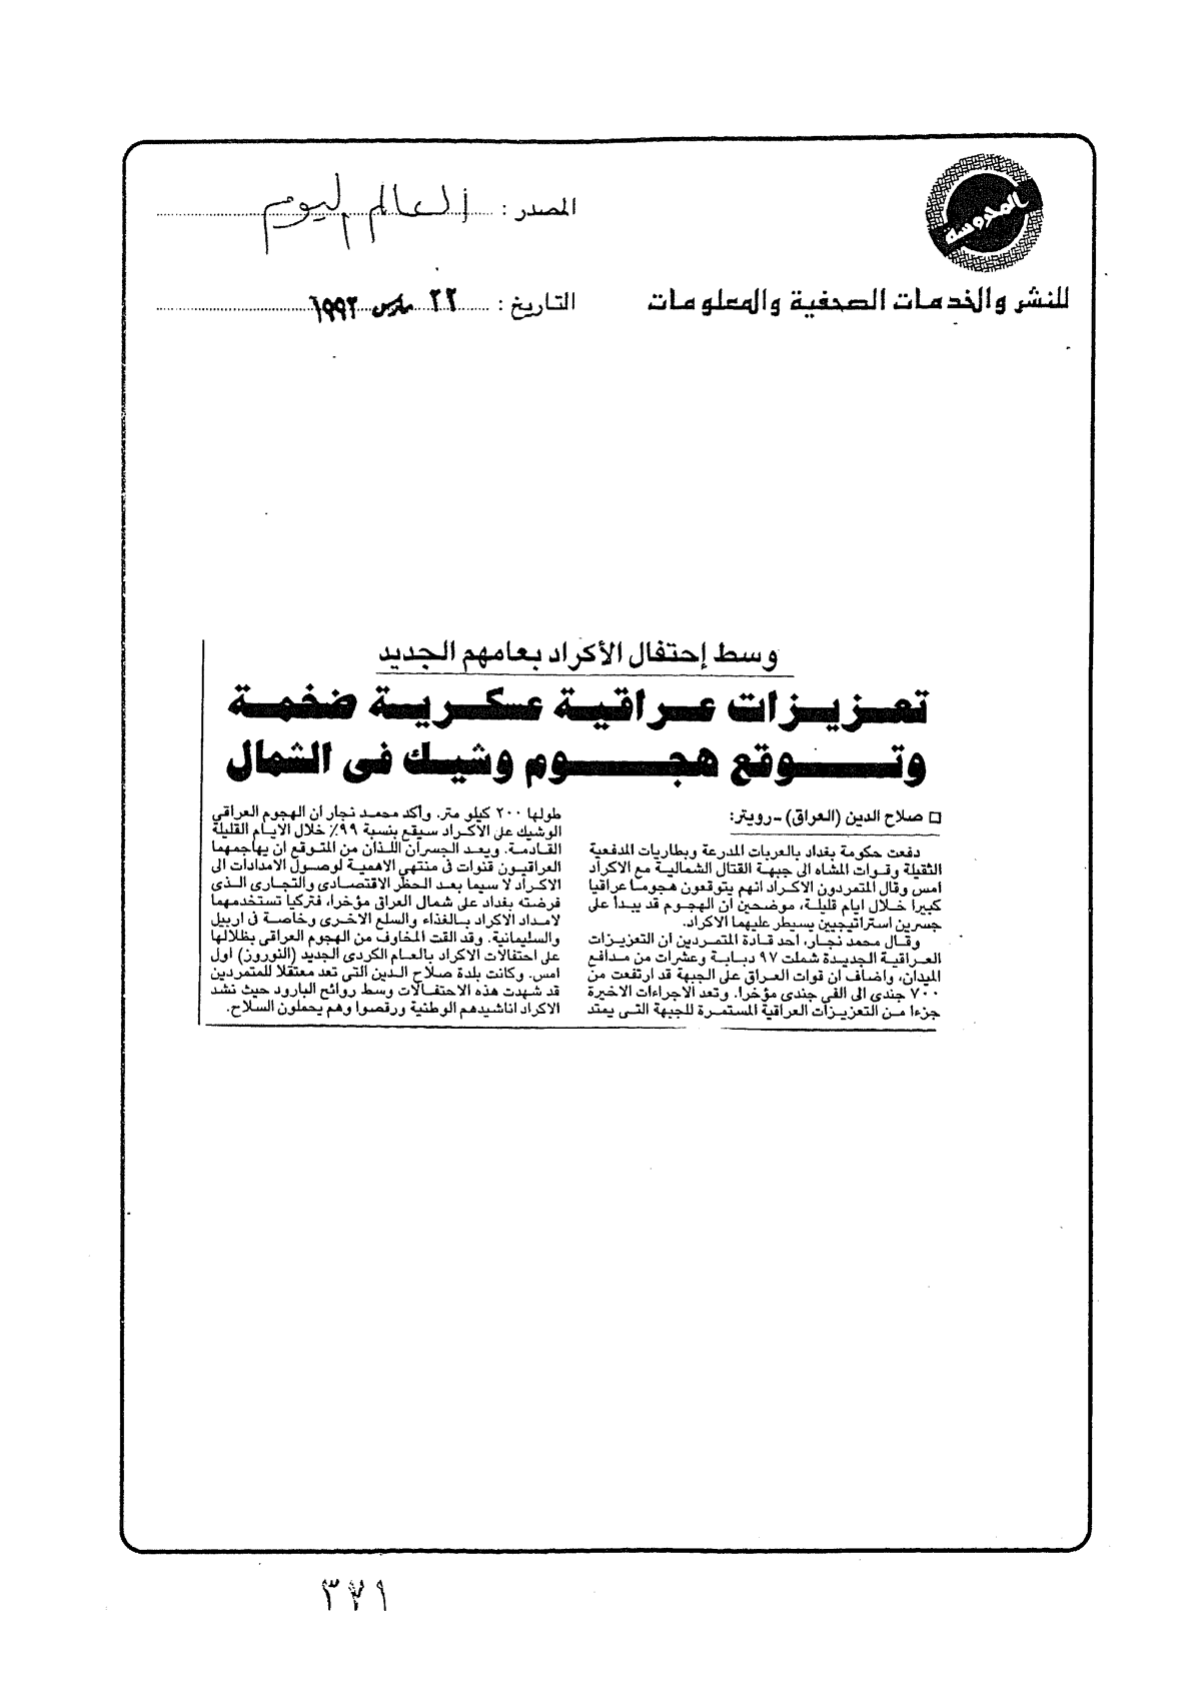 المحروسة
المصدر : العالم اليوم
للنشر والخدمات الصحفية والمعلومات
التاريخ : ٢٢ مارس ١٩٩٢
وسط إحتفال الأكراد بعامهم الجديد
تعزيزات عراقية عسكرية ضخمة
وتوقع هجوم وشيك فى الشمال
□ صلاح الدين (العراق) - رويتر:
دفعت حكومة بغداد بالعربات المدرعة وبطاريات المدفعية
الثقيلة وقوات المشاه الى جبهة القتال الشمالية مع الاكراد
امس وقال المتمردون الاكراد انهم يتوقعون هجوما عراقيا
كبيرا خلال ايام قليلة، موضحين ان الهجوم قد يبدأ على
جسرين استراتيجيين يسيطر عليهما الاكراد.
وقال محمد نجار، احد قادة المتمردين ان التعزيزات
العراقية الجديدة شملت ٩٧ دبابة وعشرات من مدافع
الميدان، واضاف ان قوات العراق على الجبهة قد ارتفعت من
٧٠٠ جندى الى الفى جندى مؤخرا. وتعد الاجراءات الاخيرة
جزءا من التعزيزات العراقية المستمرة للجبهة التى يمتد
طولها ٢٠٠ كيلو متر. وأكد محمد نجار ان الهجوم العراقي
الوشيك على الاكراد سيقع بنسبة ٩٩٪ خلال الايام القليلة
القادمة. ويعد الجسران اللذان من المتوقع ان يهاجمهما
العراقيون قنوات فى منتهى الاهمية لوصول الامدادات الى
الاكراد لا سيما بعد الحظر الاقتصادى والتجارى الذى
فرضته بغداد على شمال العراق مؤخرا، فتركيا تستخدمهما
لامداد الاكراد بالغذاء والسلع الاخرى وخاصة فى اربيل
والسليمانية. وقد القت المخاوف من الهجوم العراقى بظلالها
على احتفالات الاكراد بالعام الكردى الجديد (النوروز) اول
امس. وكانت بلدة صلاح الدين التى تعد معتقلا للمتمردين
قد شهدت هذه الاحتفالات وسط روائح البارود حيث نشد
الاكراد اناشيدهم الوطنية ورقصوا وهم يحملون السلاح.
٣٧١